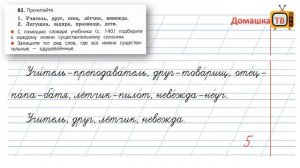 Домашка
ТВ
82. Прочитайте.
1. Учитель, друг, отец, лётчик, невежда.
2. Лягушка, ящерка, провинция, дети.
С помощью словаря учебника (с. 140) подберите
к каждому имени существительному синоним.
Запишите тот ряд слов, где все имена существи-
тельные — одушевлённые.
Учитель-преподаватель, друг-товарищ, отец-
папа-батя, лётчик-пилот, невежда-неуч.
Учитель, друг, лётчик, невежда.
5